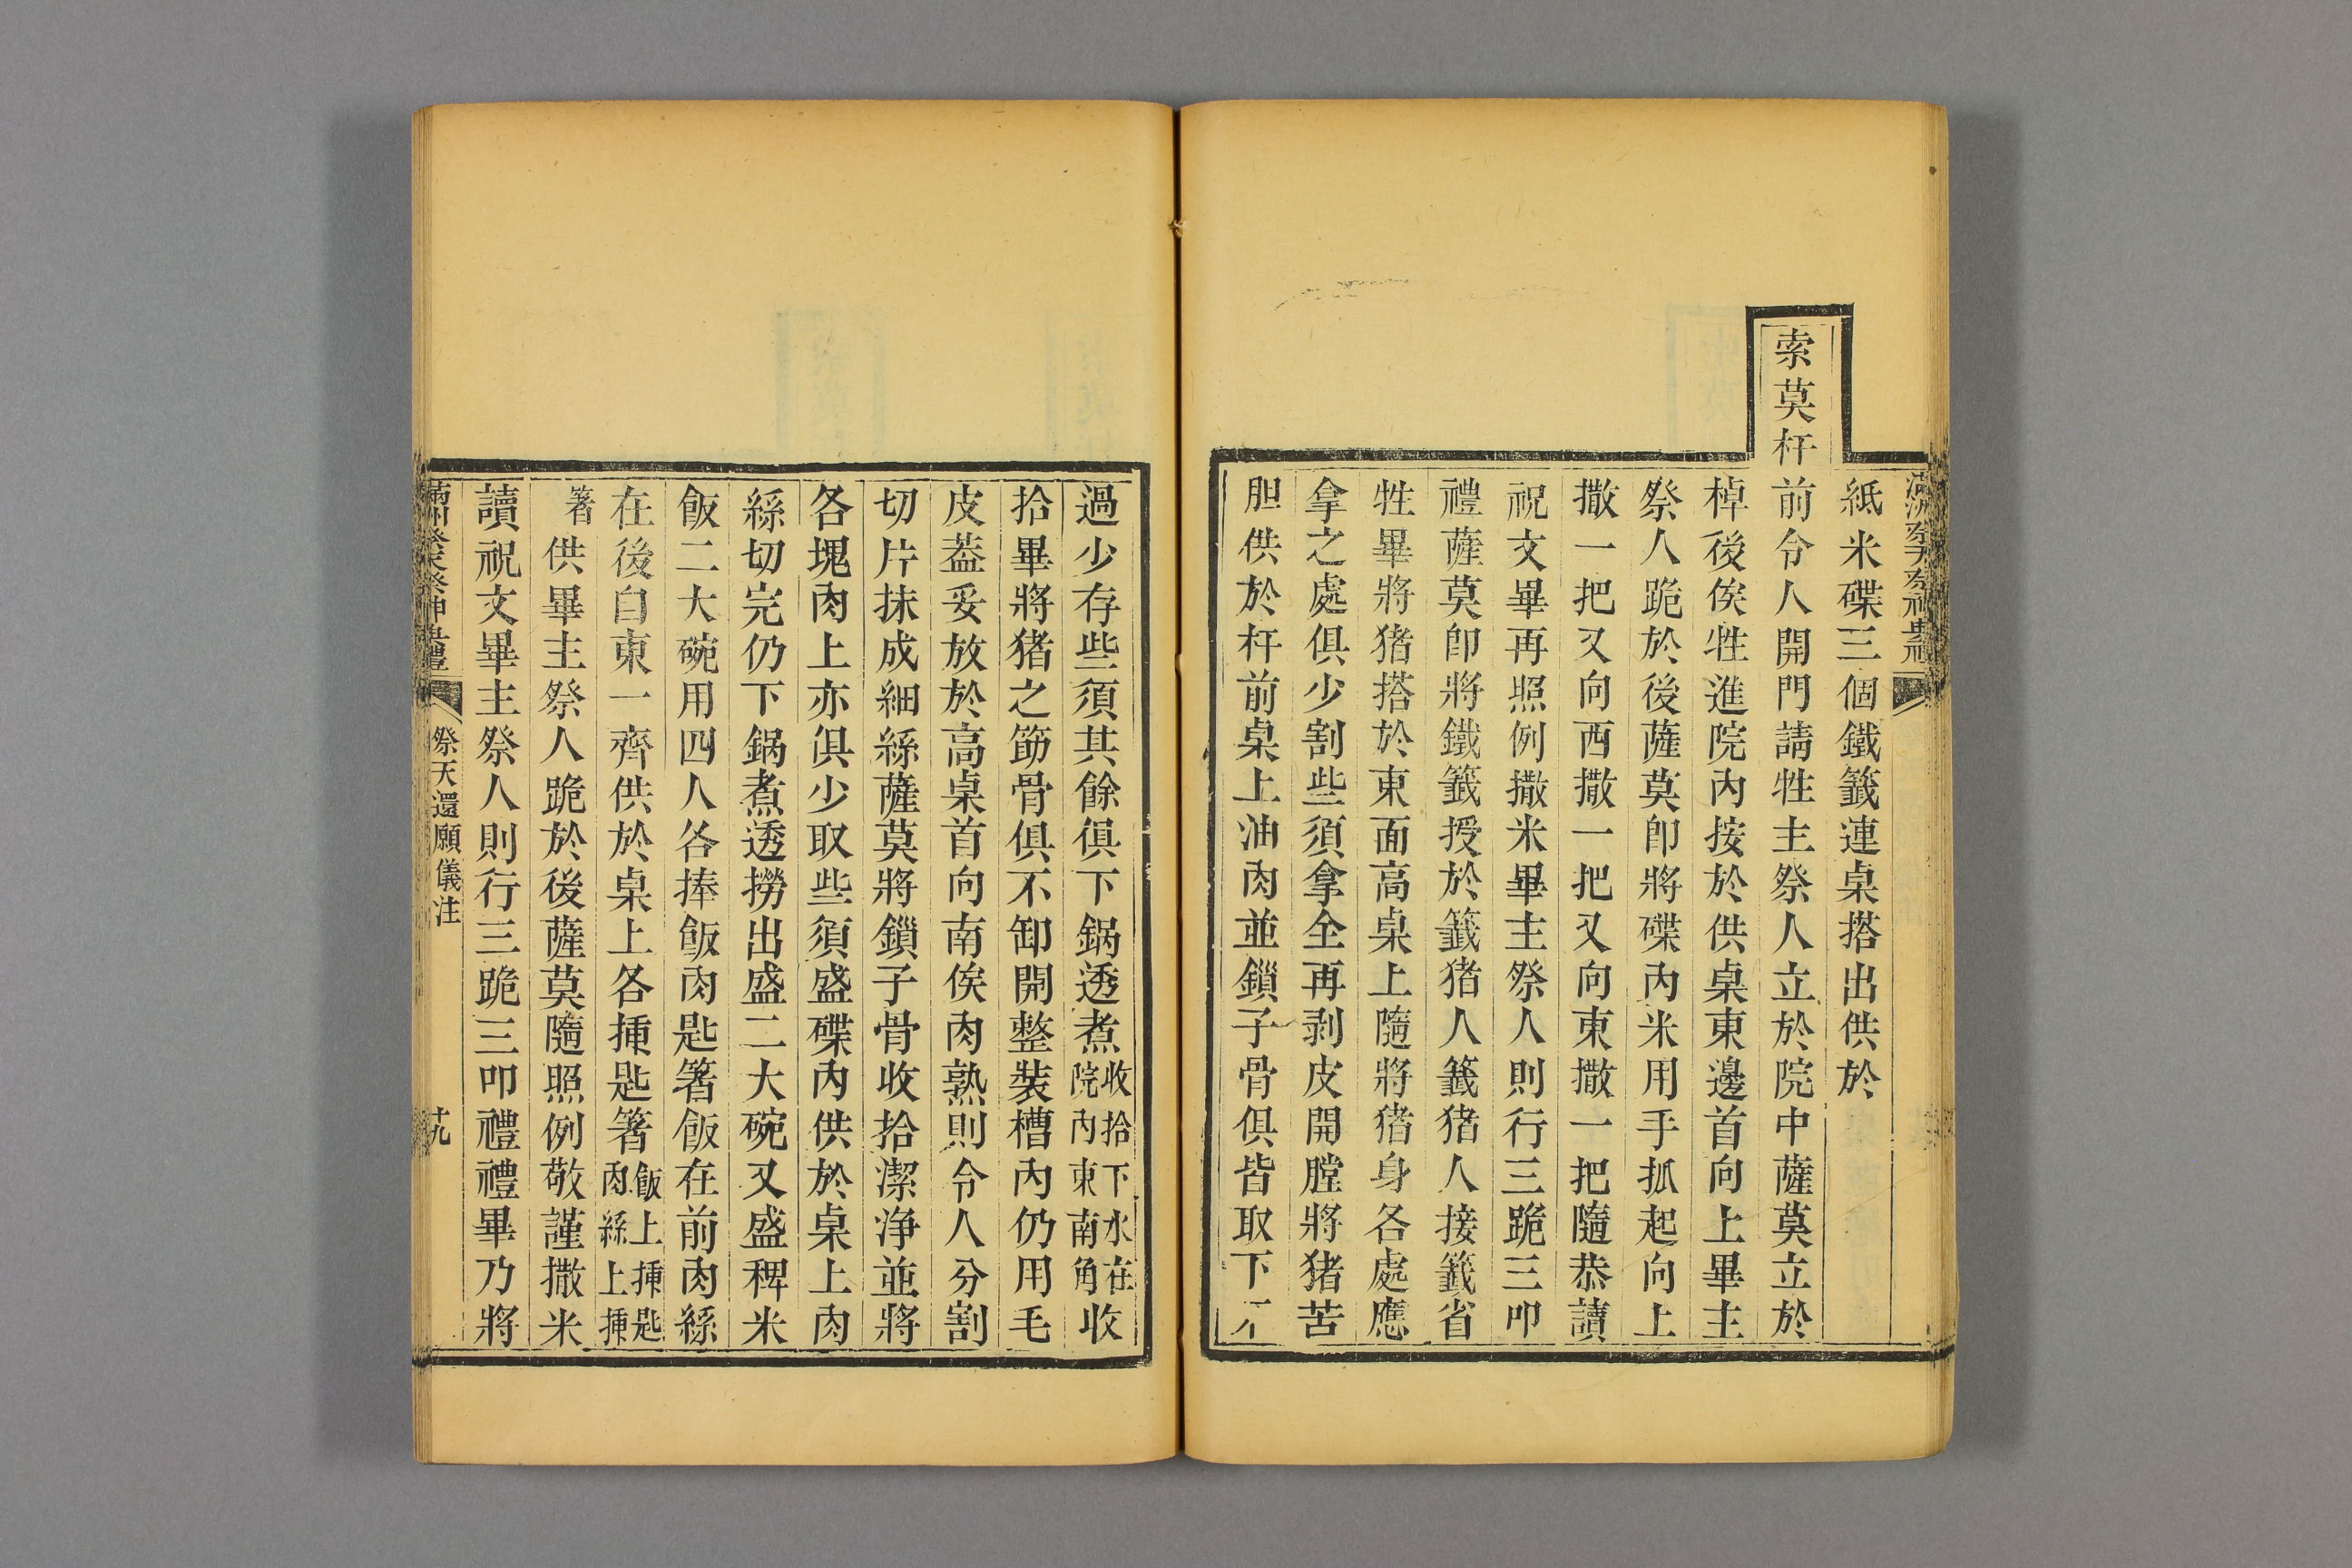 紙米碟三個鐵籤連桌搭出供於
索莫杆前令人開門請牲主祭人立於院中薩莫立於
棹後俟牲進院內按於供桌東邊首向上畢主
祭人跪於後薩莫卽將碟內米用手抓起向上
撒一把又向西撒一把又向東撒一把隨恭讀
祝文畢再照例撒米畢主祭人則行三跪三叩
禮薩莫卽將鐵籤授於籤猪人籤猪人接籤省
牲畢將猪搭於東面高桌上隨將猪身各處應
拿之處俱少割些須拿全再剥皮開膛將猪苦
胆供於杆前桌上油肉並鎖子骨俱皆取下不
過少存些須其餘俱下鍋透煮收拾下水在院內東南角收
拾畢將猪之筋骨俱不卸開整裝槽內仍用毛
皮葢妥放於高桌首向南俟肉熟則令人分割
切片抹成細絲薩莫將鎖子骨收拾潔净並將
各塊肉上亦俱少取些須盛碟內供於桌上肉
絲切完仍下鍋煮透撈出盛二大碗又盛稗米
飯二大碗用四人各捧飯肉匙箸飯在前肉絲
在後自東一齊供於桌上各揷匙箸飯上揷匙肉絲上揷
箸供畢主祭人跪於後薩莫隨照例敬謹撒米
讀祝文畢主祭人則行三跪三叩禮禮畢乃將
滿洲祭天祭神典禮 祭天還願儀注 十九